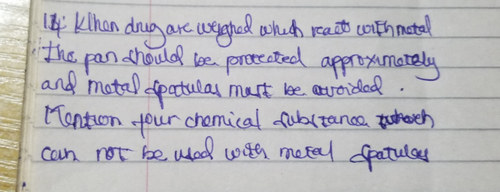 14: When drug are weighed which react with metal
the pan should be protected approximately
and metal spatulas must be avoided.
Mention four chemical substance which
can not be used with metal spatulas